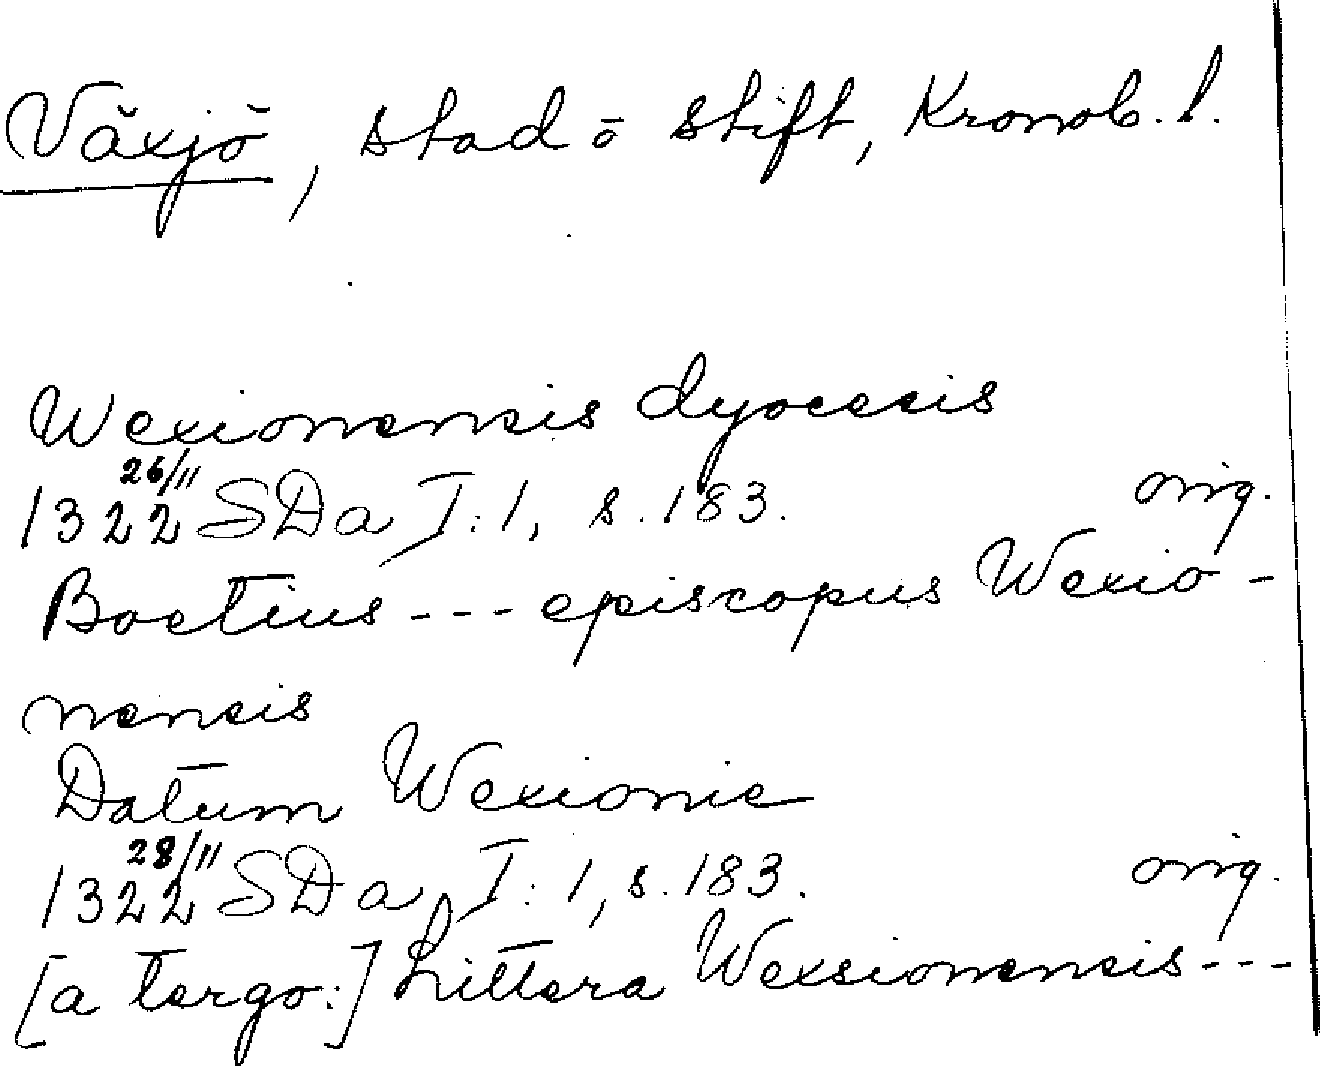 Växjö, stad ō stift, Kronob. l.
Wexionensis dyocesis
1322 26/11 SDa I:1, s. 183. orig.
Boetius --- episcopus Wexio-
nensis
Datum Wexionie
1322 28/11 SDa I:1, s. 183. orig.
[a tergo:] Littera Wexsionensis ---